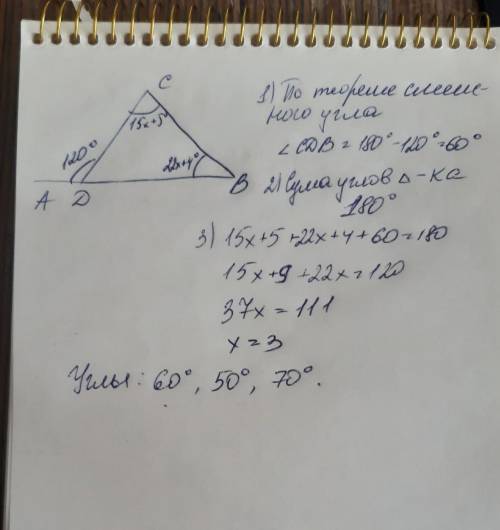 C
15x+5°
120°
22x+4°
A D B
1) По теореме смеж-
ного угла
∠CDB = 180° - 120° = 60°
2) Сума углов Δ-ка
180°
3) 15x+5+22x+4+60=180
15x+9+22x=120
37x=111
x=3
Углы: 60°, 50°, 70°.